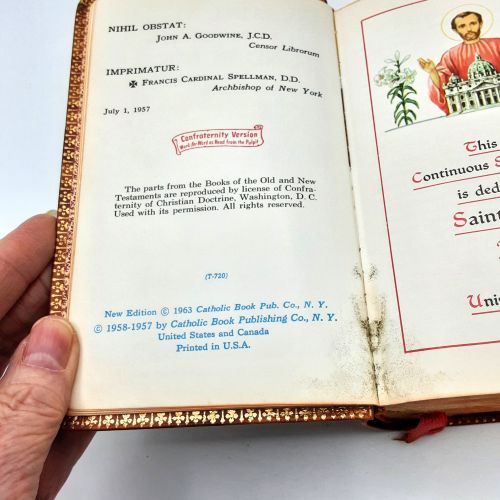 NIHIL OBSTAT:
John A. Goodwine, J.C.D.
Censor Librorum
IMPRIMATUR:
✠ Francis Cardinal Spellman, D.D.
Archbishop of New York
July 1, 1957
Confraternity Version
Word-for-Word as Read from the Pulpit
The parts from the Books of the Old and New
Testaments are reproduced by license of Confra-
ternity of Christian Doctrine, Washington, D. C.
Used with its permission. All rights reserved.
(T-720)
New Edition © 1963 Catholic Book Pub. Co., N. Y.
© 1958-1957 by Catholic Book Publishing Co., N. Y.
United States and Canada
Printed in U.S.A.
This
Continuous S
is ded
Saint
Unis